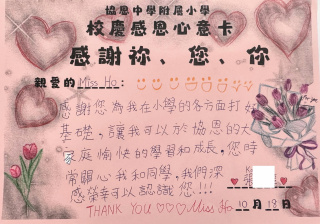 協恩中學附屬小學
校慶感恩心意卡
感謝祢、您、你
親愛的 Miss Ho:
感謝您為我在小學的各方面打好
基礎，讓我可以於協恩的大
家庭愉快的學習和成長，您時
常關心我和同學，我們深
感榮幸可以認識您!!!
THANK YOU ♡♡♡ Miss Ho
10月19日